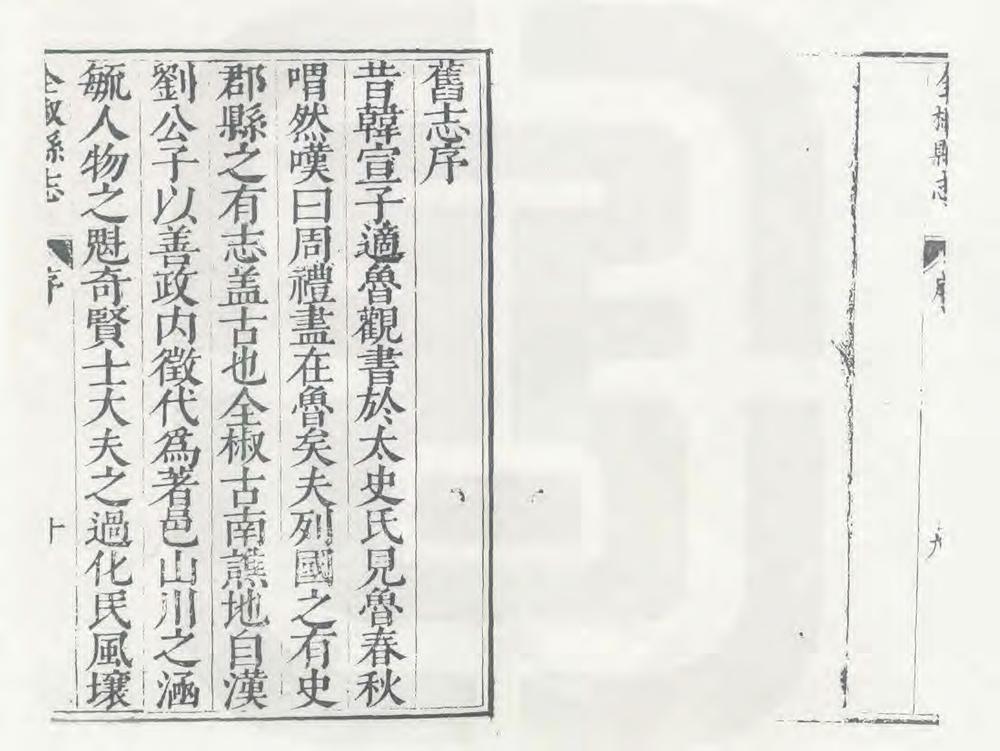 全椒縣志
序
九
舊志序
昔韓宣子適魯觀書於太史氏見魯春秋
喟然嘆曰周禮盡在魯矣夫列國之有史
郡縣之有志盖古也全椒古南譙地自漢
劉公子以善政内徵代爲著邑山川之涵
毓人物之魁奇賢士大夫之過化民風壤
全椒縣志
序
十